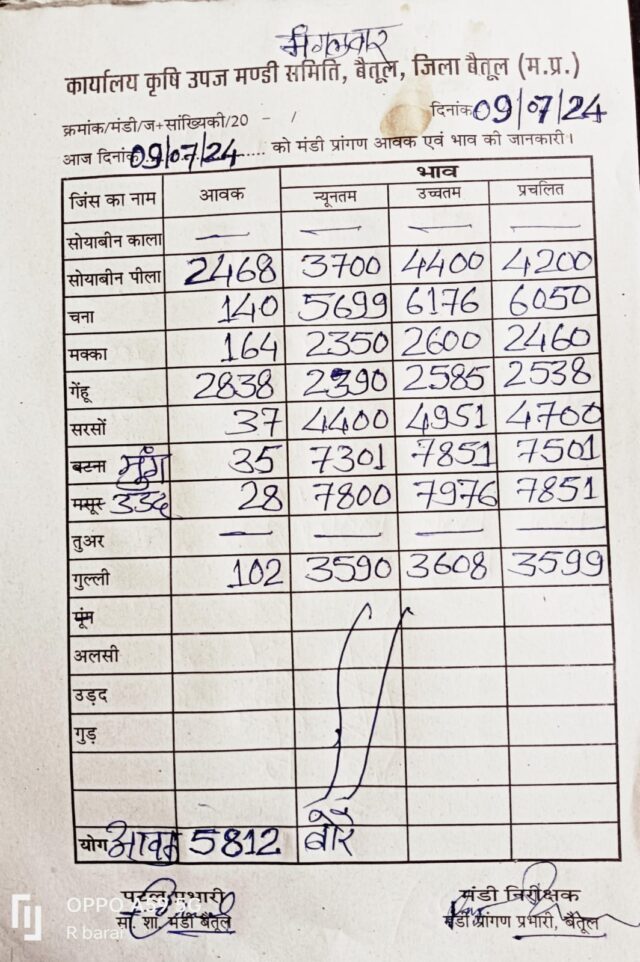 मंगलवार
कार्यालय कृषि उपज मण्डी समिति, बैतूल, जिला बैतूल (म.प्र.)
क्रमांक/मंडी/ज+सांख्यिकी/20 - / दिनांक 09/07/24
आज दिनांक 09/07/24 को मंडी प्रांगण आवक एवं भाव की जानकारी।
जिंस का नाम आवक भाव
न्यूनतम उच्चतम प्रचलित
सोयाबीन काला — — — —
सोयाबीन पीला 2468 3700 4400 4200
चना 140 5699 6176 6050
मक्का 164 2350 2600 2460
गेंहू 2838 2390 2585 2538
सरसों 37 4400 4951 4700
बटना मुंग 35 7301 7851 7501
मसूर उड़द 28 7800 7976 7851
तुअर — — — —
गुल्ली 102 3590 3608 3599
मूंग
अलसी
उड़द
गुड़
योग आवक 5812 बोरे
प्रभारी मंडी निरीक्षक
मंडी बैतूल मंडी प्रांगण प्रभारी, बैतूल
OPPO A52 5G
R barar